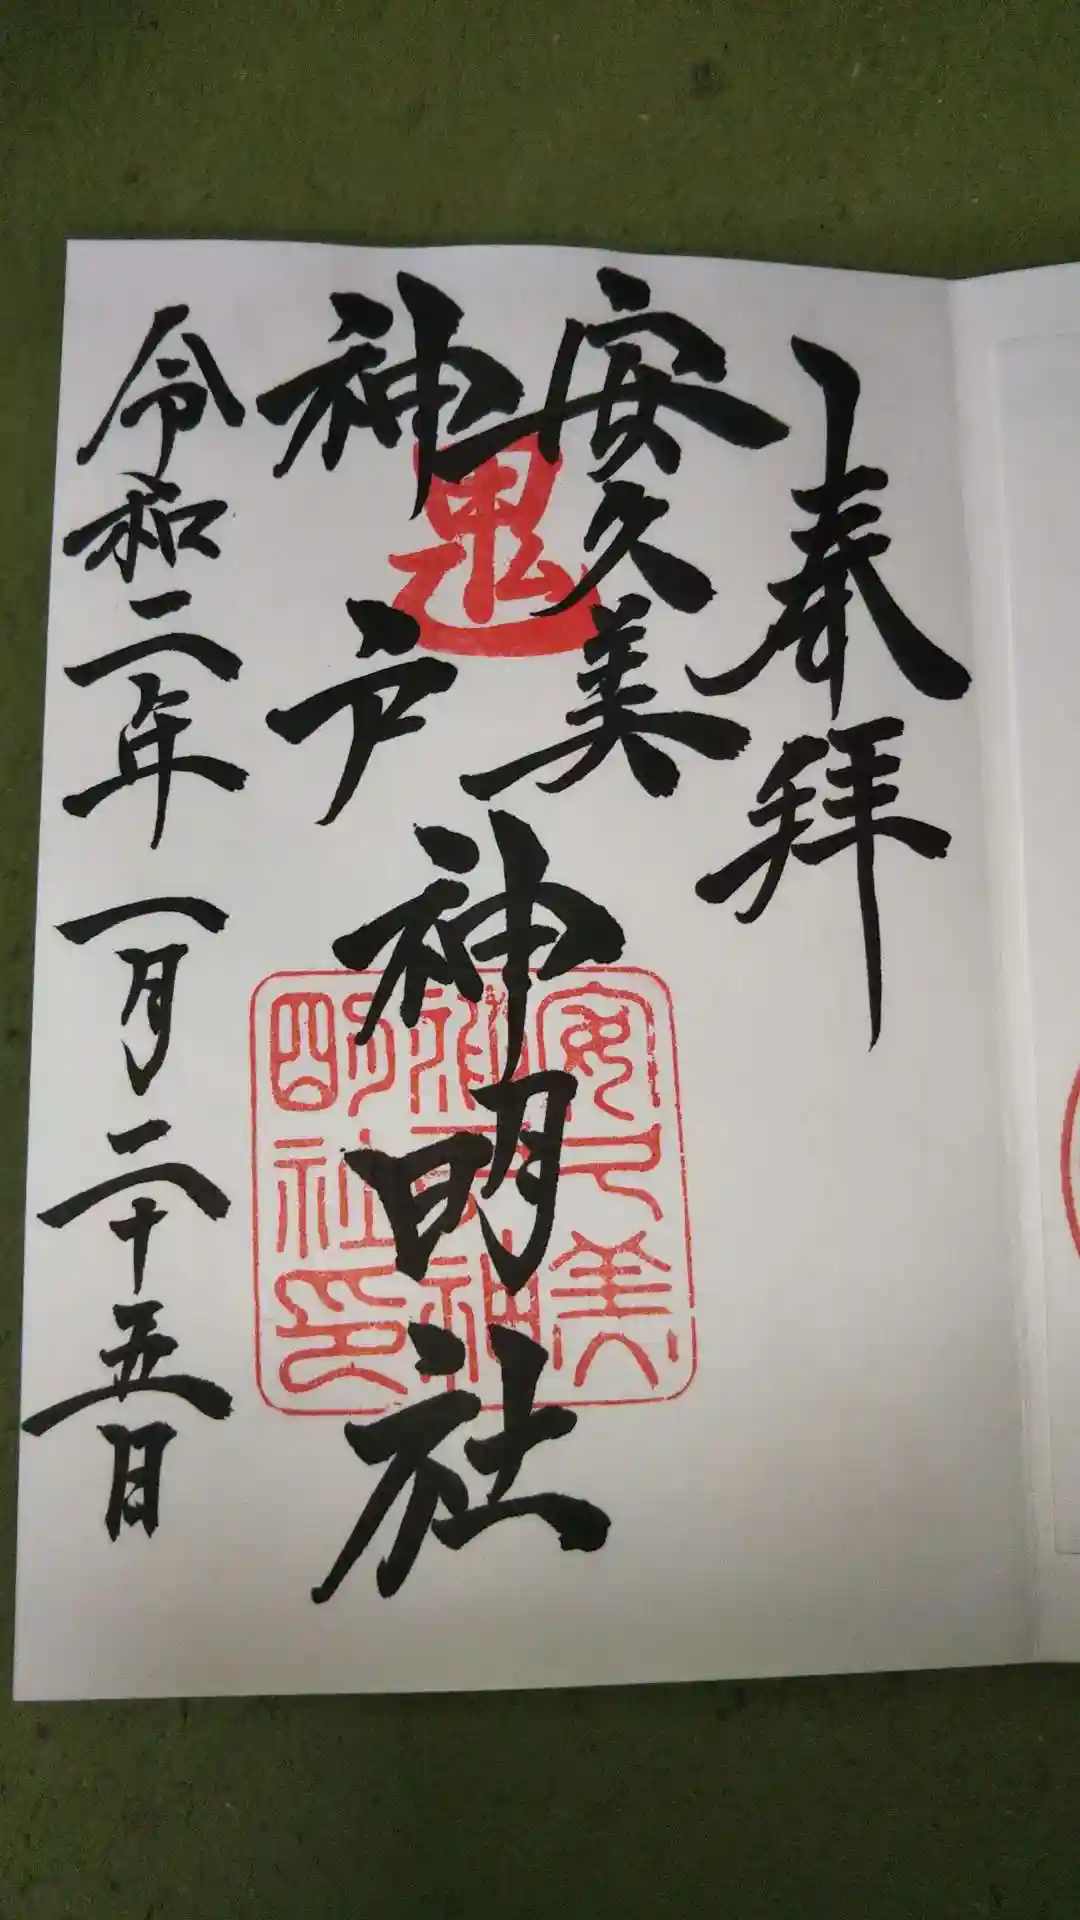 奉拝
安久美
神戸
神明社
令和二年一月二十五日
鬼
安久美
神戸神
明社印